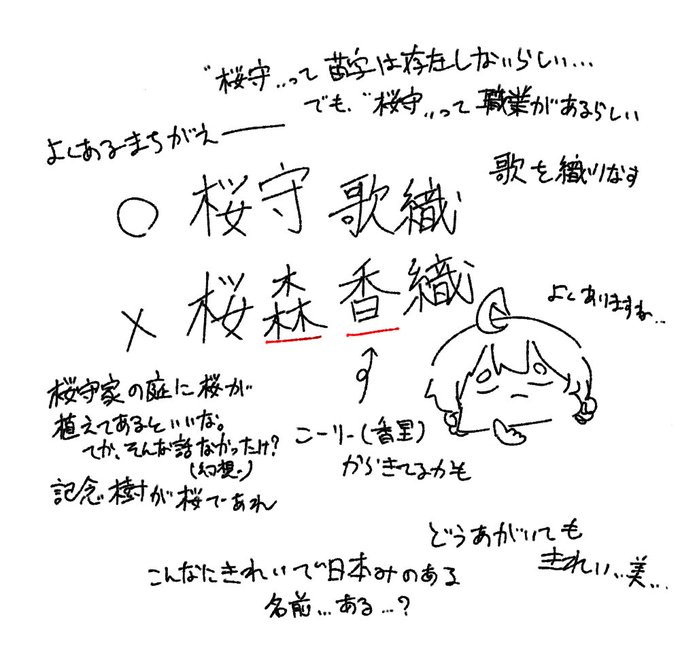 "桜守"って苗字は存在しないらしい…
でも、"桜守"って職業があるらしい
よくあるまちがえ——
歌を織りなす
○ 桜守歌織
× 桜森香織
よくありますね…
桜守家の庭に桜が
植えてあるといいな。
てか、そんな話なかったけ?
(幻想?)
記念樹が桜であれ
こーりー(香里)
からきてるかも
どうあがいても
きれい…美…
こんなにきれいで日本みのある
名前…ある…?